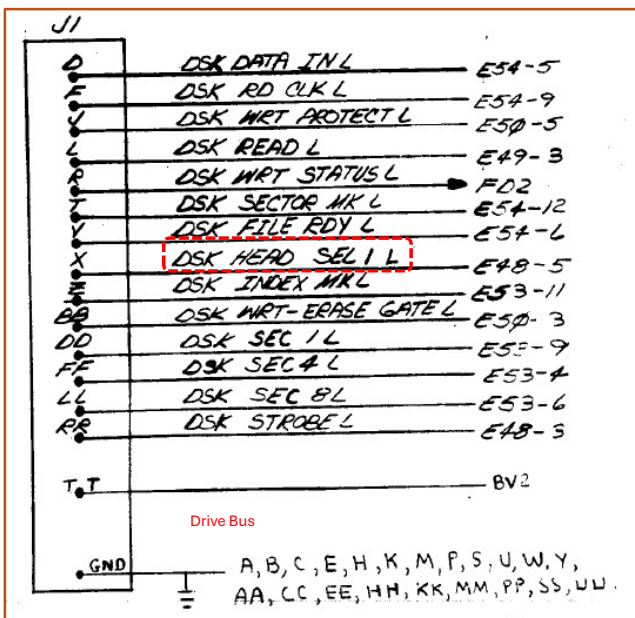 J1
D DSK DATA IN L E54-5
F DSK RD CLK L E54-9
J DSK WRT PROTECT L E5Ø-5
L DSK READ L E49-3
R DSK WRT STATUS L FD2
T DSK SECTOR MK L E54-12
V DSK FILE RDY L E54-6
X DSK HEAD SEL 1 L E48-5
Z DSK INDEX MK L E53-11
BB DSK WRT-ERASE GATE L E5Ø-3
DD DSK SEC 1 L E53-9
FF DSK SEC 4 L E53-4
LL DSK SEC 8 L E53-6
RR DSK STROBE L E48-3
TT BV2
Drive Bus
GND A, B, C, E, H, K, M, P, S, U, W, Y,
AA, CC, EE, HH, KK, MM, PP, SS, UU.